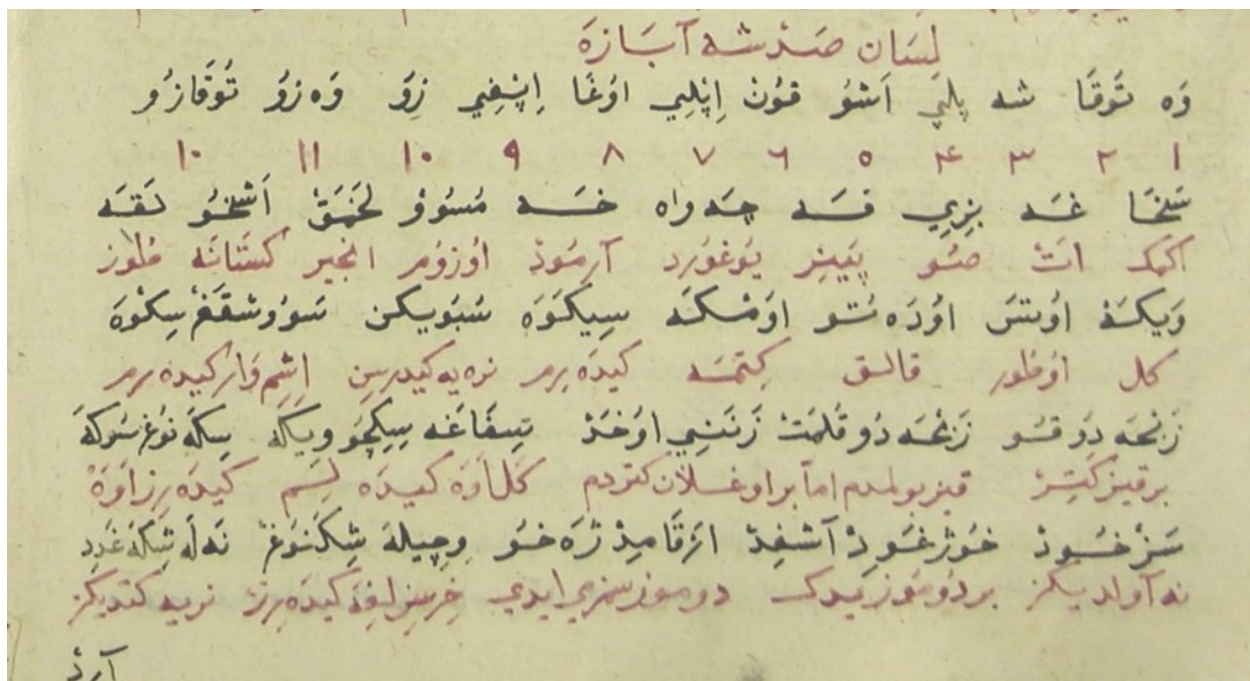 لِسَان صَدْشَه آبَازَه
وَه تُوقَا شه پلپى اَشُو قُوُنْ اِپْلِيِي اوُغَا اِپْشِفِيِ زِوُ وَه زَوُ تُوقَازوُ
۱ ۲ ۳ ۴ ۵ ۶ ۷ ۸ ۹ ۱۰ ۱۱ ۱۰
سَخَا غَه بزِيى قَسَه چَه وَاه خَسَه مُسُوڤ لَخَمَقْ اَشْخُو نَقَه
اكمك اتْ صُو پَينِر يُوغُورد آرمُودْ اوُزوُمر انجير كستَانَه طُوُز
وَيكَه اوُسَسْ اوُدَه سُو اوَسْكَه سِيكَوَه سُبَويكن سَوُوشقَغْ سِكْوَه
كل اوُطُور قالق كِتمَه كيدَه رِم نره يه كيدرسن اِشِم وَار كيده رم
زَنْحَه دَوقسَو زَنْحَه دُوقلَمَتْ زَنَسِي اوُخَدْ تِسقَاغَه سِكِچَو ويكَه سِكَه نُوغ سُوكَه
بر قيز كتِر قيز بولمدم اما بر اوغلان كتردم كَل اوَه كيدَه لِيَم كيدَه رِز اوَه
سَزْ خَبودْ خُوژ غَوِدْ آشفِدْ ارقَا مِدْ ژَه خَو وِچيلَه شِكَنُوغْ نَه لَه شِكَه غَدِد
نه آولديكز بر دُومُوز يدك دوموز سمزميايدى خِرسزلغه كيدَه رِز نريه كتديكز
آردْ